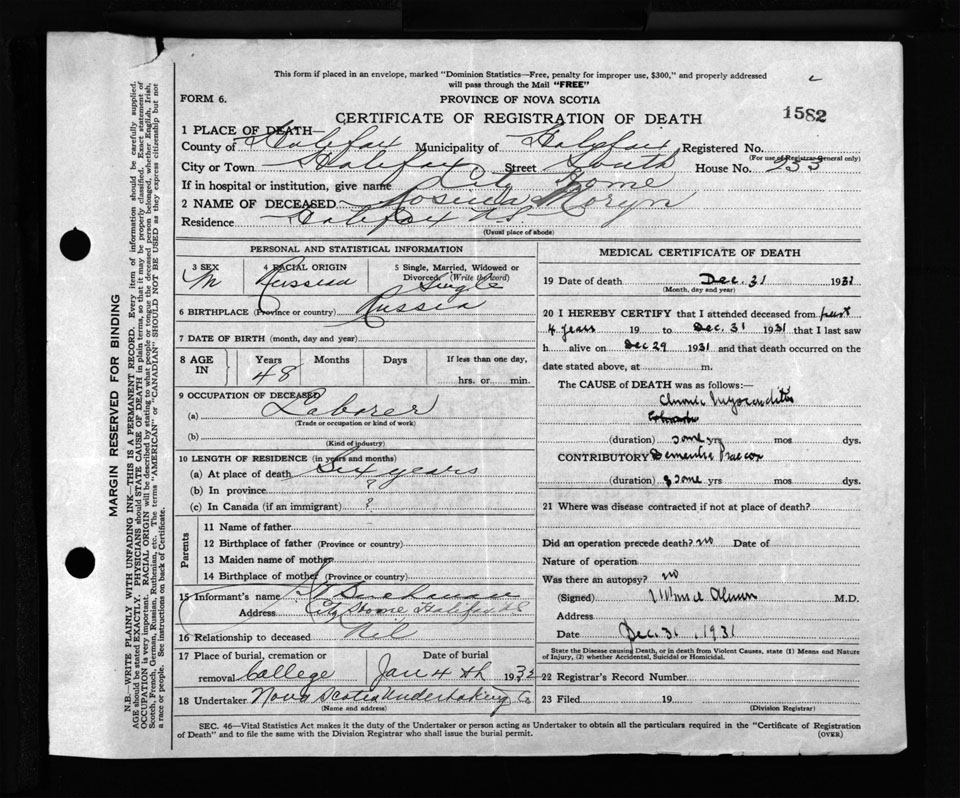 This form if placed in an envelope, marked "Dominion Statistics—Free, penalty for improper use, $300," and properly addressed
will pass through the Mail "FREE"
FORM 6.
PROVINCE OF NOVA SCOTIA
CERTIFICATE OF REGISTRATION OF DEATH
1582
1 PLACE OF DEATH—
County of Halifax Municipality of Halifax Registered No.
(For use of Registrar General only)
City or Town Halifax Street South House No. 253
If in hospital or institution, give name City Home
2 NAME OF DECEASED Moryn
Residence Halifax N.S.
(Usual place of abode)
PERSONAL AND STATISTICAL INFORMATION
3 SEX 4 RACIAL ORIGIN 5 Single, Married, Widowed or
Divorced. (Write the word)
M Russian Single
6 BIRTHPLACE (Province or country) Russia
7 DATE OF BIRTH (month, day and year)
8 AGE IN Years Months Days If less than one day,
48 hrs. or min.
9 OCCUPATION OF DECEASED
(a) Laborer
(Trade or occupation or kind of work)
(b)
(Kind of industry)
10 LENGTH OF RESIDENCE (in years and months)
(a) At place of death Six years
(b) In province ?
(c) In Canada (if an immigrant) ?
Parents
11 Name of father
12 Birthplace of father (Province or country)
13 Maiden name of mother
14 Birthplace of mother (Province or country)
15 Informant's name Buchanan
Address City Home Halifax N.S.
16 Relationship to deceased Nil
17 Place of burial, cremation or Date of burial
removal College Jan 4th 1932
18 Undertaker Nova Scotia Undertaking Co
(Name and address)
MEDICAL CERTIFICATE OF DEATH
19 Date of death Dec. 31 1931
(Month, day and year)
20 I HEREBY CERTIFY that I attended deceased from past
4 years 19 to Dec. 31 1931 that I last saw
h alive on Dec 29 1931 and that death occurred on the
date stated above, at m.
The CAUSE of DEATH was as follows:—
Chronic Myocarditis
(duration) some yrs mos dys.
CONTRIBUTORY Dementia Praecox
(duration) some yrs mos dys.
21 Where was disease contracted if not at place of death?
Did an operation precede death? no Date of
Nature of operation
Was there an autopsy? no
(Signed) M.D.
Address
Date Dec. 31, 1931
State the Disease causing Death, or in death from Violent Causes, state (1) Means and
Nature of Injury, (2) whether Accidental, Suicidal or Homicidal.
22 Registrar's Record Number
23 Filed 19
(Division Registrar)
SEC. 46—Vital Statistics Act makes it the duty of the Undertaker or person acting as Undertaker to obtain all the particulars required in the "Certificate of Registration
of Death" and to file the same with the Division Registrar who shall issue the burial permit.
(OVER)
MARGIN RESERVED FOR BINDING
N.B.—WRITE PLAINLY WITH UNFADING INK—THIS IS A PERMANENT RECORD. Every item of information should be carefully supplied.
AGE should be stated EXACTLY. PHYSICIANS should STATE CAUSE OF DEATH in plain terms, so that it may be properly classified. Exact statement of
OCCUPATION is very important. RACIAL ORIGIN will be described by stating to what people or tongue the deceased person belonged, whether English, Irish,
Scotch, French, German, Russian, Ruthenian, etc. The terms "AMERICAN" or "CANADIAN" SHOULD NOT BE USED as they express citizenship but not
a race or people. See instructions on back of Certificate.